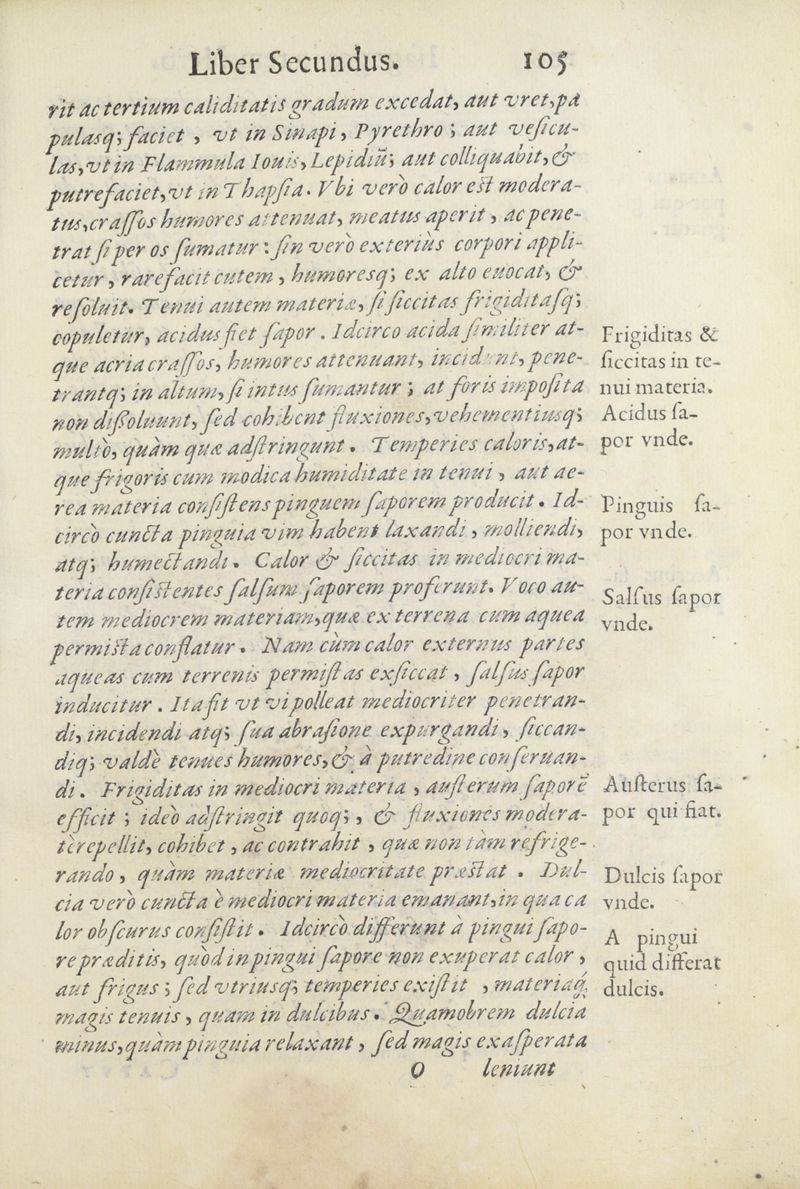 Liber Secundus. 105
rit ac tertium caliditatis gradum excedat, aut vret, pa
pulasq; faciet , vt in Sinapi, Pyrethro ; aut veſicu-
las, vt in Flammula Iouis, Lepidiũ; aut colliquabit, &
putrefaciet, vt in Thapſia. Vbi verò calor eſt modera-
tus, craſſos humores attenuat, meatus aperit , ac pene-
trat ſi per os ſumatur : ſin verò exteriùs corpori appli-
cetur , rarefacit cutem , humoresq; ex alto euocat, &
reſoluit. Tenui autem materiæ, ſi ſiccitas frigiditaſq;
copuletur, acidus fiet ſapor . Idcirco acida ſimiliter at-
que acria craſſos, humores attenuant, incidunt, pene-
trantq; in altum, ſi intus ſumantur ; at foris impoſita
non diſſoluunt, ſed cohibent fluxiones, vehementiusq;
multò, quàm quæ adſtringunt . Temperies caloris, at-
que frigoris cum modica humiditate in tenui , aut ae-
rea materia conſiſtens pinguem ſaporem producit . Id-
circò cuncta pinguia vim habent laxandi , molliendi,
atq; humectandi . Calor & ſiccitas in mediocri ma-
teria conſiſtentes ſalſum ſaporem proferunt. Voco au-
tem mediocrem materiam, quæ ex terrena cum aquea
permiſta conflatur . Nam cùm calor externus partes
aqueas cum terrenis permiſtas exſiccat , ſalſus ſapor
inducitur . Ita fit vt vi polleat mediocriter penetran-
di, incidendi atq; ſua abraſione expurgandi , ſiccan-
diq; valdè tenues humores, & à putredine conſeruan-
di . Frigiditas in mediocri materia , auſterum ſaporẽ
efficit ; ideò adſtringit quoq; , & fluxiones modera-
tè repellit, cohibet , ac contrahit , quæ non tàm refrige-
rando , quàm materiæ mediocritate præſtat . Dul-
cia verò cuncta è mediocri materia emanant, in qua ca
lor obſcurus conſiſtit . Idcircò differunt à pingui ſapo-
re præditis, quòd in pingui ſapore non exuperat calor ,
aut frigus ; ſed vtriusq; temperies exiſtit , materiaq́;
magis tenuis , quam in dulcibus . Quamobrem dulcia
minus, quàm pinguia relaxant , ſed magis exaſperata
O leniunt
Frigiditas &
ſiccitas in te-
nui materia.
Acidus ſa-
por vnde.
Pinguis ſa-
por vnde.
Salſus ſapor
vnde.
Auſterus ſa-
por qui fiat.
Dulcis ſapor
vnde.
A pingui
quid differat
dulcis.